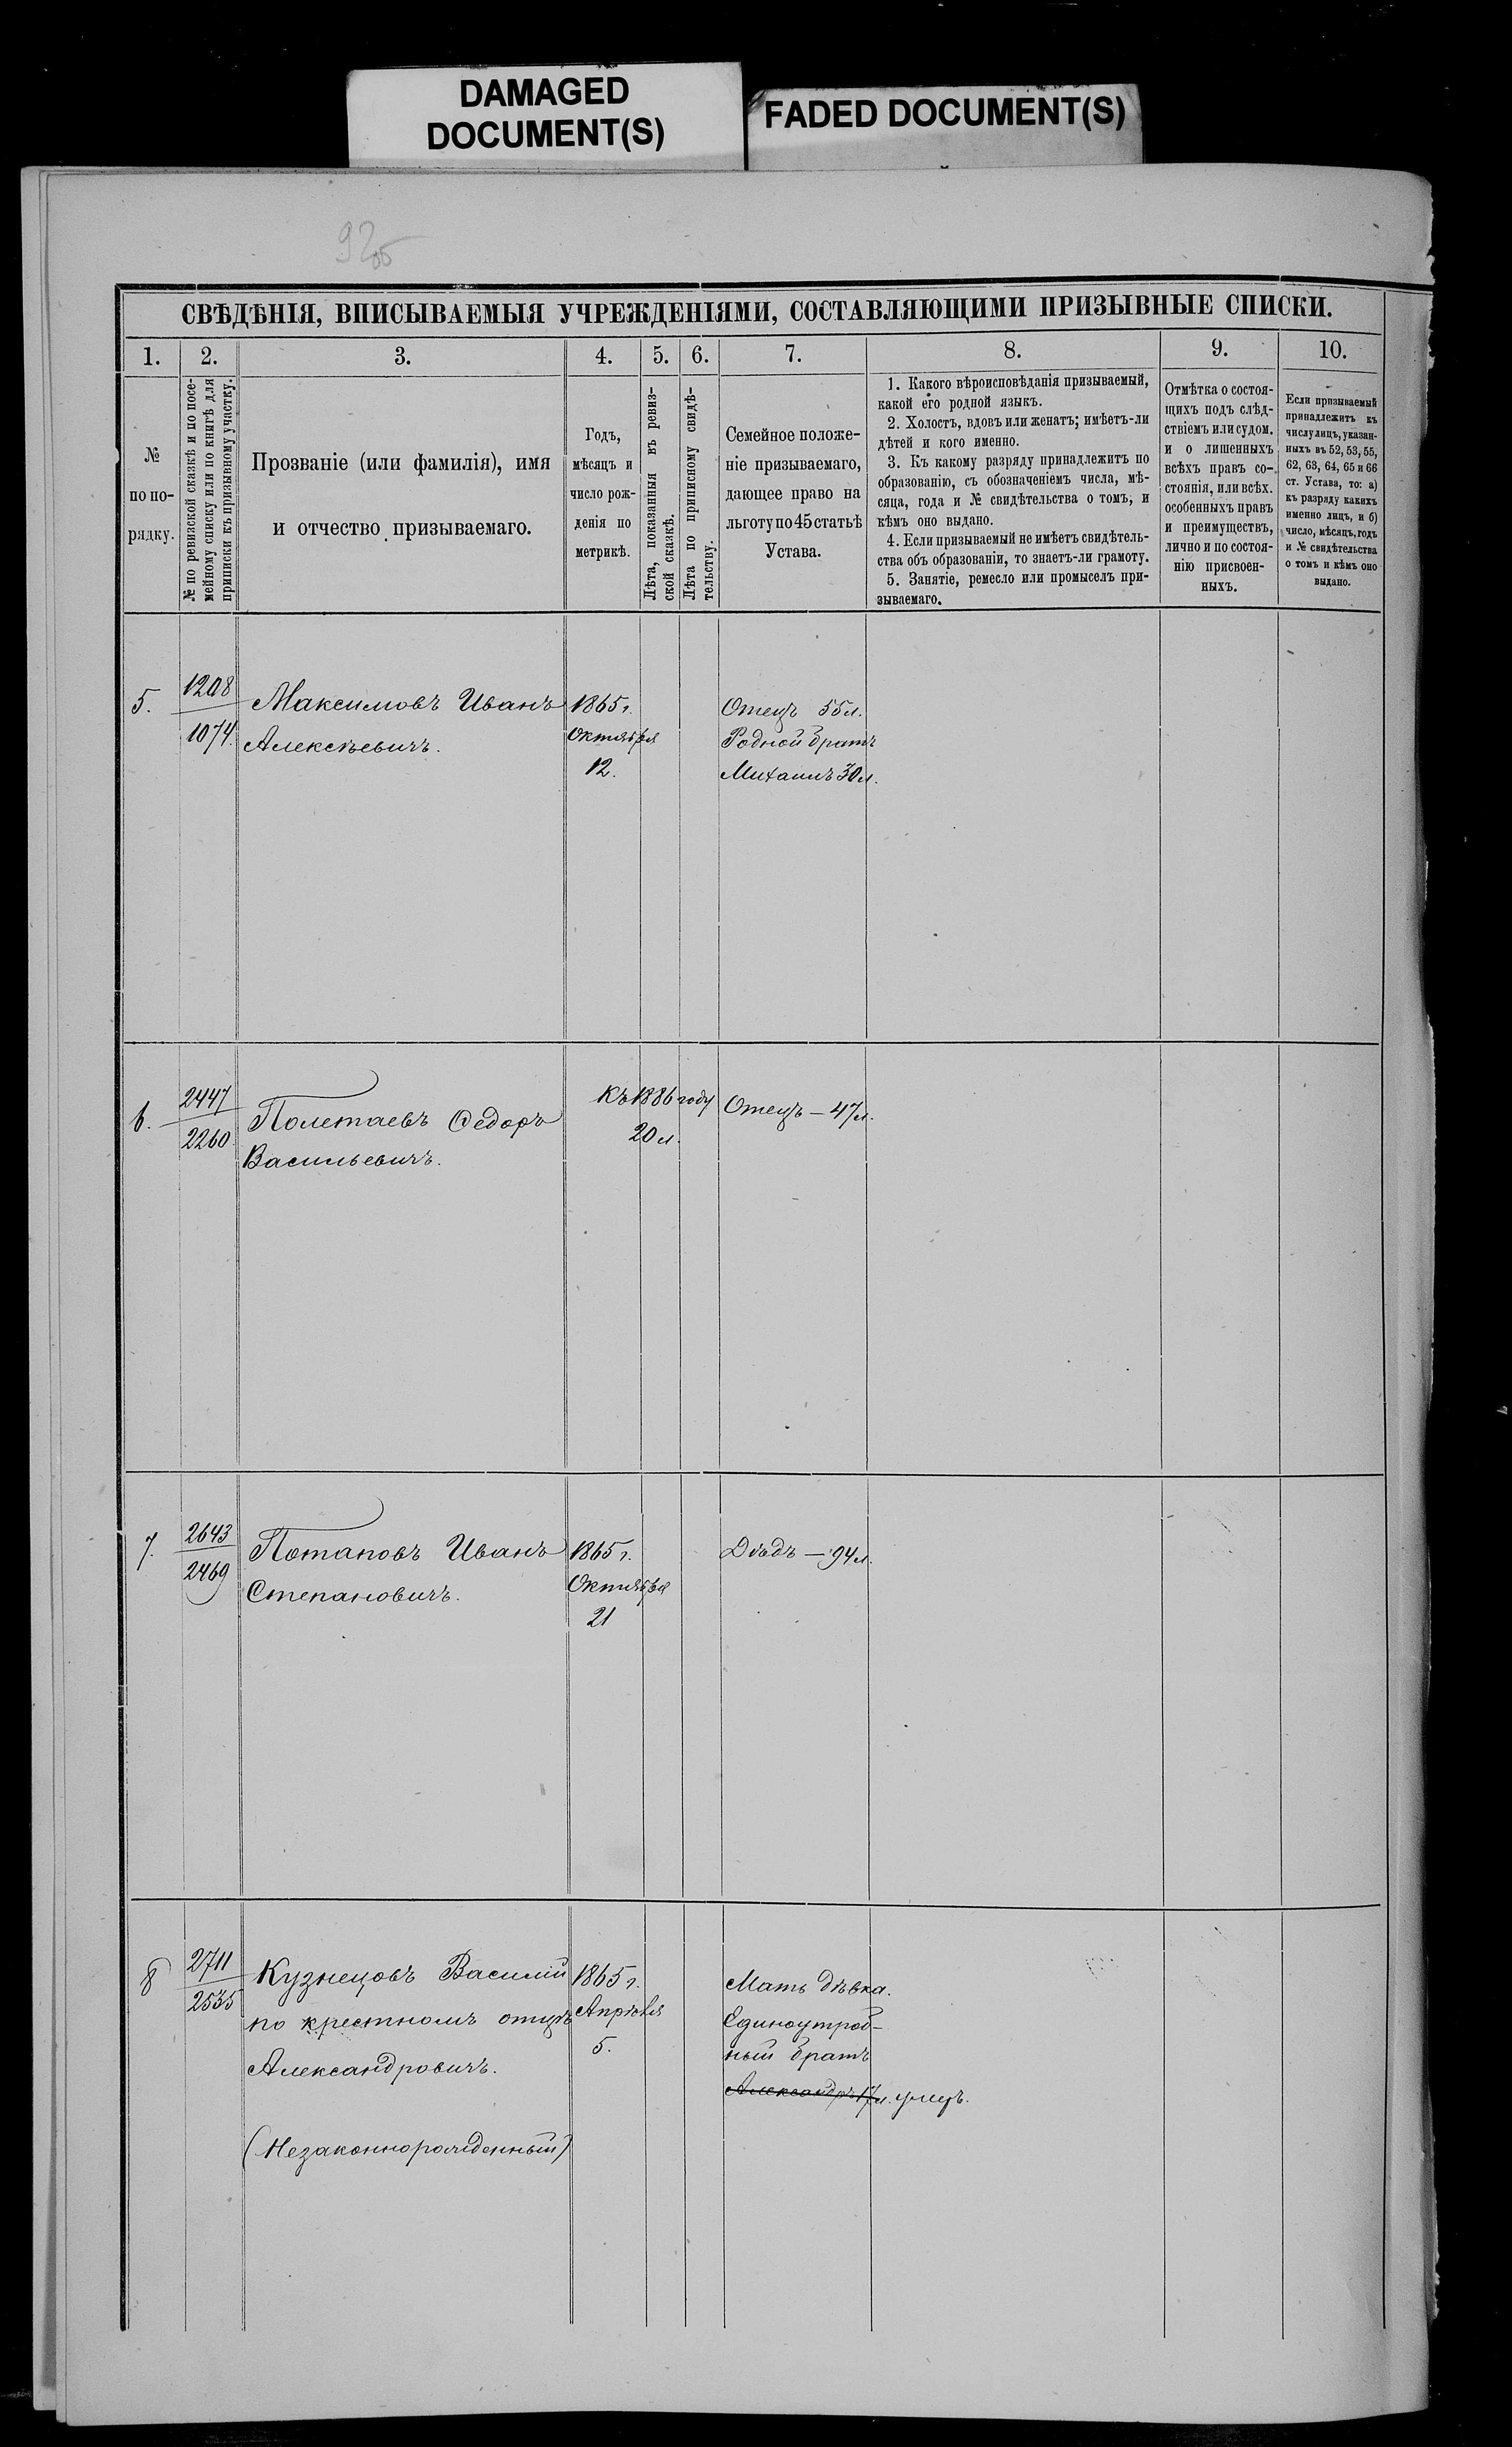 DAMAGED
DOCUMENT(S)
FADED DOCUMENT(S)
92об
СВѢДѢНІЯ, ВПИСЫВАЕМЫЯ УЧРЕЖДЕНІЯМИ, СОСТАВЛЯЮЩИМИ ПРИЗЫВНЫЕ СПИСКИ.
1. 2. 3. 4. 5. 6. 7. 8. 9. 10.
№
по по-
рядку.
№ по ревизской сказкѣ и по посе-
мейному списку или по книгѣ для
приписки къ призывному участку.
Прозваніе (или фамилія), имя
и отчество призываемаго.
Годъ,
мѣсяцъ и
число рож-
денія по
метрикѣ.
Лѣта, показанныя въ ревиз-
ской сказкѣ.
Лѣта по приписному свидѣ-
тельству.
Семейное положе-
ніе призываемаго,
дающее право на
льготу по 45 статьѣ
Устава.
1. Какого вѣроисповѣданія призываемый,
какой его родной языкъ.
2. Холостъ, вдовъ или женатъ; имѣетъ-ли
дѣтей и кого именно.
3. Къ какому разряду принадлежитъ по
образованію, съ обозначеніемъ числа, мѣ-
сяца, года и № свидѣтельства о томъ, и
кѣмъ оно выдано.
4. Если призываемый не имѣетъ свидѣтель-
ства объ образованіи, то знаетъ-ли грамоту.
5. Занятіе, ремесло или промыселъ при-
зываемаго.
Отмѣтка о состоя-
щихъ подъ слѣд-
ствіемъ или судом.
и о лишенныхъ
всѣхъ правъ со-
стоянія, или всѣх.
особенныхъ правъ
и преимуществъ,
лично и по состоя-
нію присвоен-
ныхъ.
Если призываемый
принадлежитъ къ
числу лицъ, указан-
ныхъ въ 52, 53, 55,
62, 63, 64, 65 и 66
ст. Устава, то: а)
къ разряду какихъ
именно лицъ, и б)
число, мѣсяцъ, годъ
и № свидѣтельства
о томъ и кѣмъ оно
выдано.
5.
1208
1074.
Максимовъ Иванъ
Алексѣевичъ.
1865 г.
Октября
12.
Отецъ 55 л.
Родной братъ
Михаилъ 30 л.
6.
2447
2260
Полетаевъ Ѳедоръ
Васильевичъ.
Къ 1886 году
20 л.
Отецъ – 47 л.
7.
2643
2469
Потаповъ Иванъ
Степановичъ.
1865 г.
Октября
21
Дѣдъ – 94 л.
8
2711
2535
Кузнецовъ Василій
по крестномъ отцѣ
Александровичъ.
(Незаконнорожденный)
1865 г.
Апрѣля
5.
Мать дѣвка.
Единоутроб-
ный братъ
Александръ 17 л. умеръ.